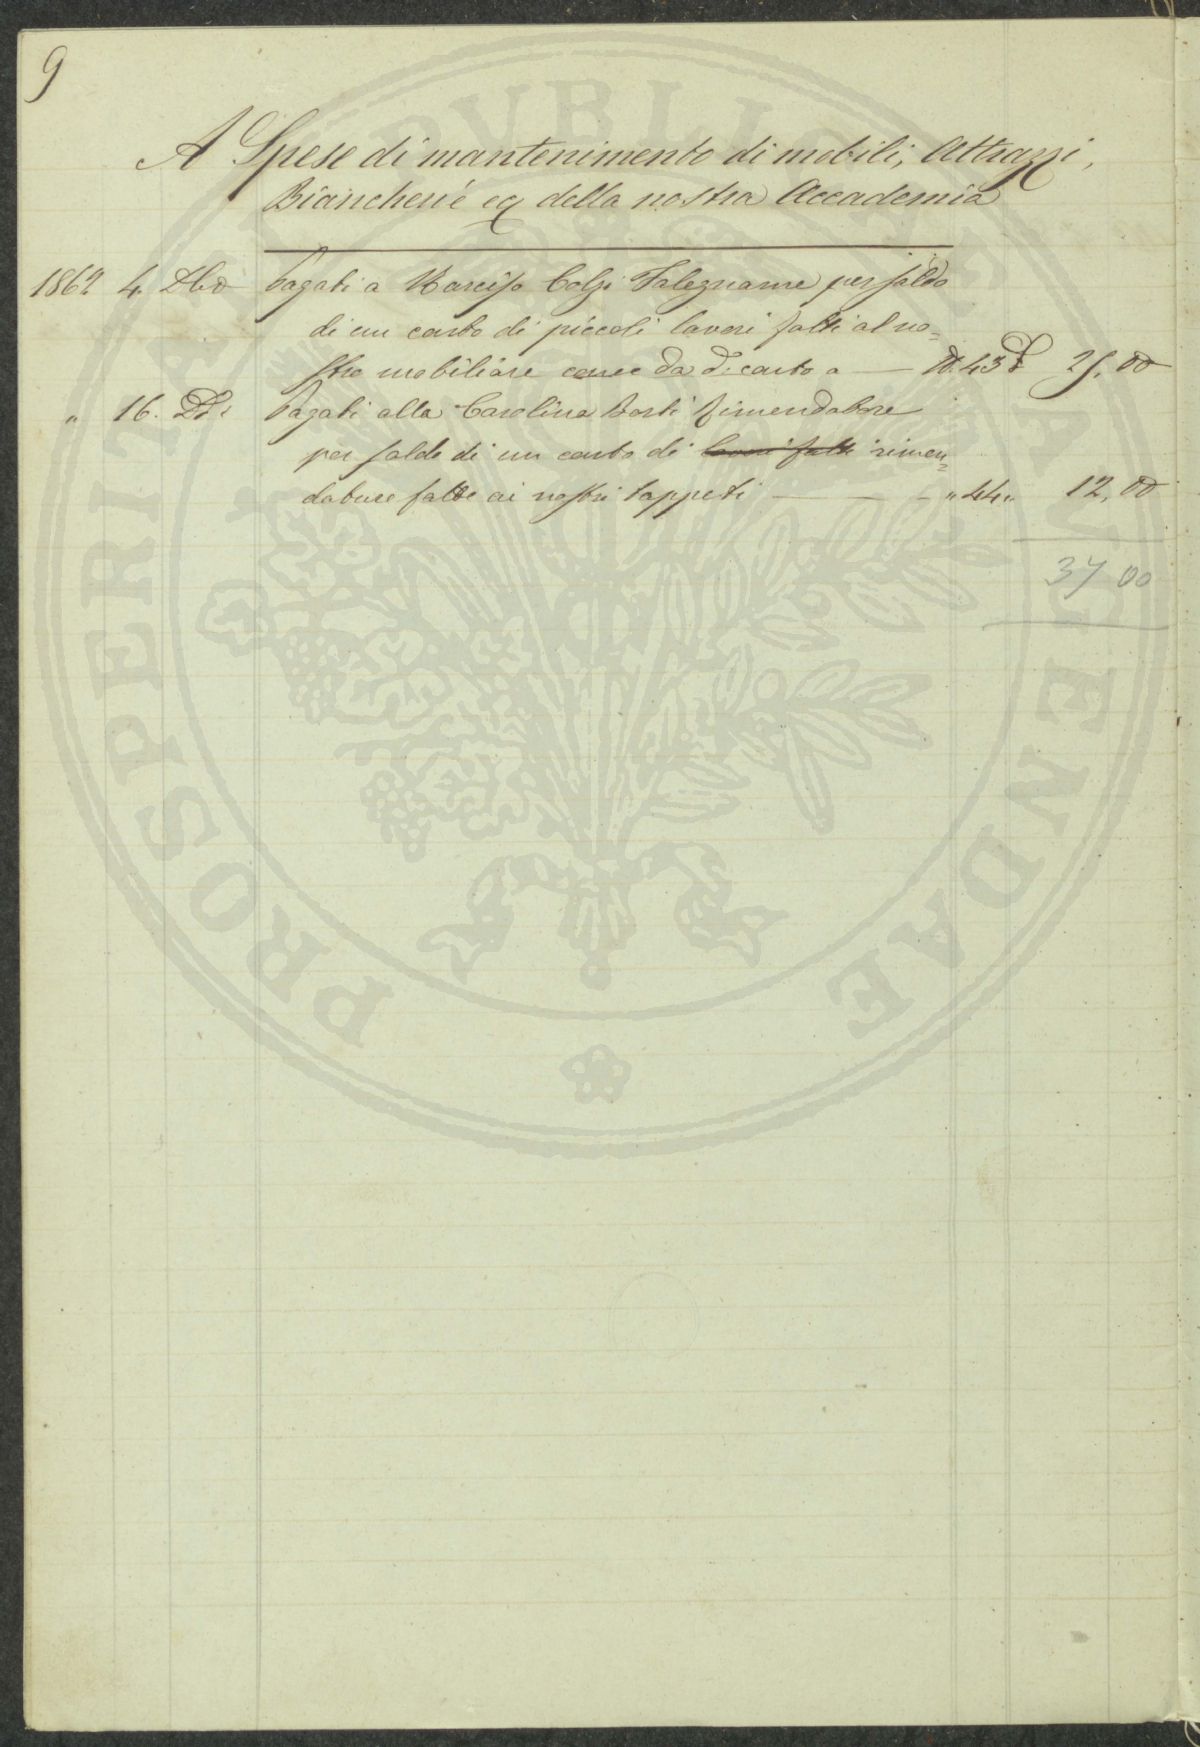 9
A Spese di mantenimento di mobili, Attrazzi,
Biancherie ec della nostra Accademia
1862 4. Dbe Pagati a Narciso Calzi Falegname per saldo
di un conto di piccoli lavori fatti al no=
stro mobiliare come da d. conto a — N. 43 25,00
" 16. Do Pagati alla Carolina Bosti rimendatore
per saldo di un conto di lavori fatti rimen=
dature fatte ai nostri tappeti — " 44 " 12,00
37 00
PROSPERITATI PUBLICAE AUGENDAE